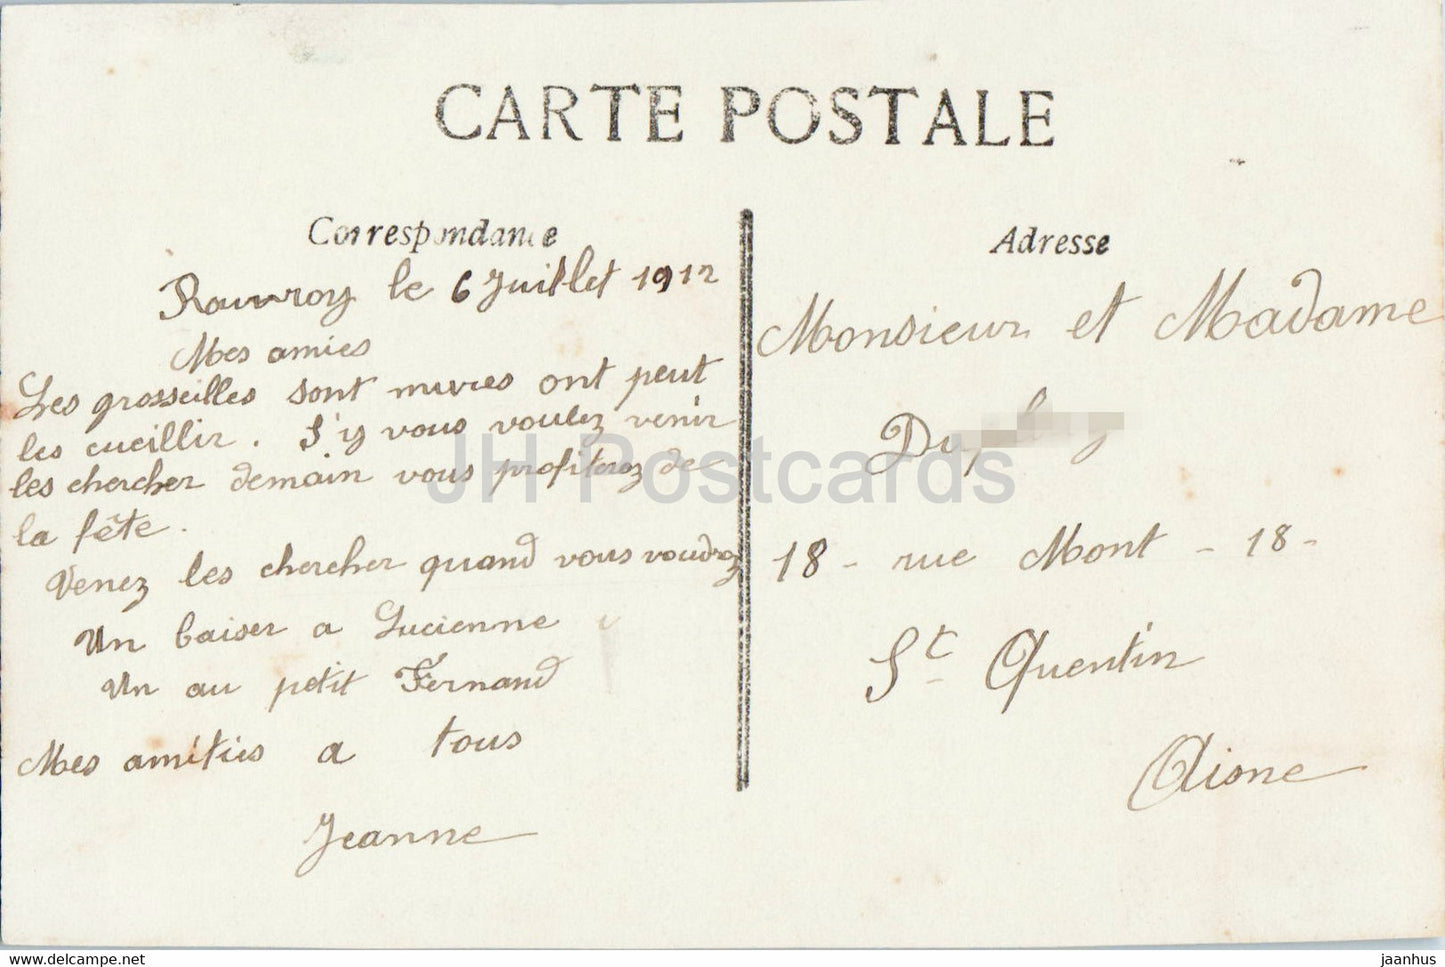 CARTE POSTALE
Correspondance
Rouvroy le 6 Juillet 1912
Mes amies
Les grosseilles sont mures ont peut
les cueillir. S'iy vous voulez venir
les chercher demain vous profiterez de
la fête.
Venez les chercher quand vous voudrez
Un baiser a Lucienne
Un au petit Fernand
Mes amities a tous
Jeanne
Adresse
Monsieur et Madame
18 - rue Mont - 18 -
St Quentin
Aisne
JH Postcards
https://www.hippostcard.com
jaanhus